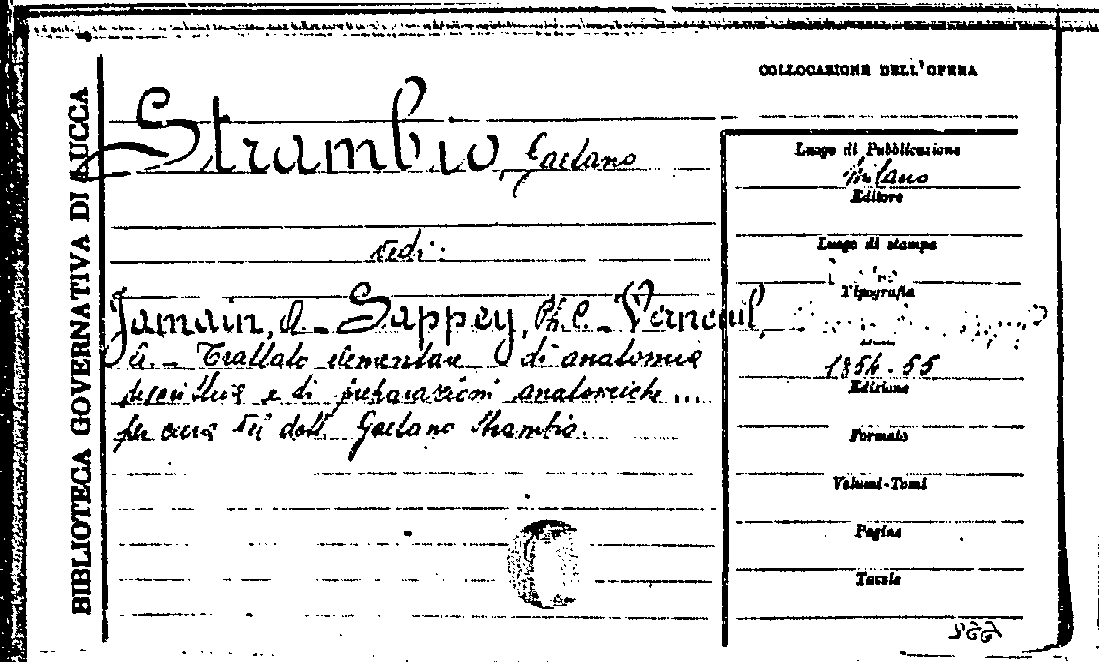 COLLOCAZIONE DELL'OPERA
BIBLIOTECA GOVERNATIVA DI LUCCA
Strambio, Gaetano
vedi:
Jamain, A. - Sappey, Ph. C. - Verneuil,
A. - Trattato elementare di anatomia
descrittiva e di preparazioni anatomiche...
per cura del dott. Gaetano Strambio.
Luogo di Pubblicazione
Milano
Editore
Luogo di stampa
Tipografia
1854-55
Edizione
Formato
Volumi-Tomi
Pagine
Tavole